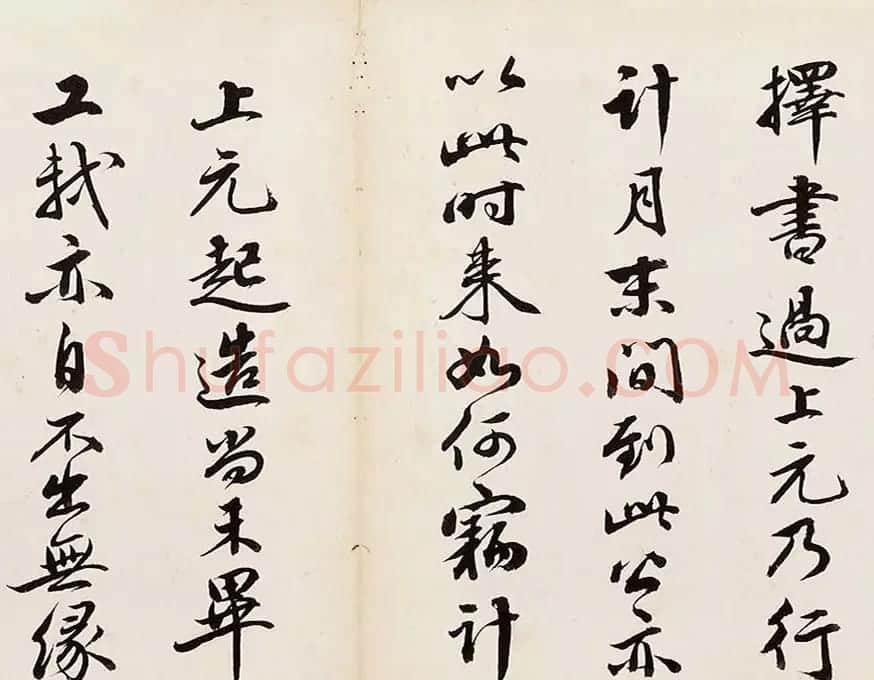 擇書過上元乃行
計月末間到此公亦
以此時来如何竊計
上元起造尚未畢
工軾亦自不出無緣
Shufaziliao.COM